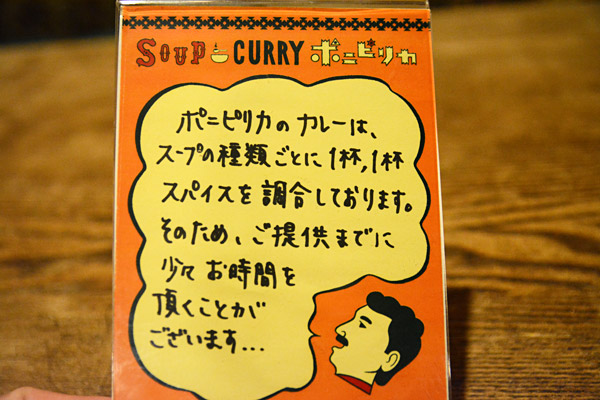 SOUP CURRY ポニピリカ
ポニピリカのカレーは、
スープの種類ごとに1杯,1杯
スパイスを調合しております。
そのため、ご提供までに
少々お時間を
頂くことが
ございます...